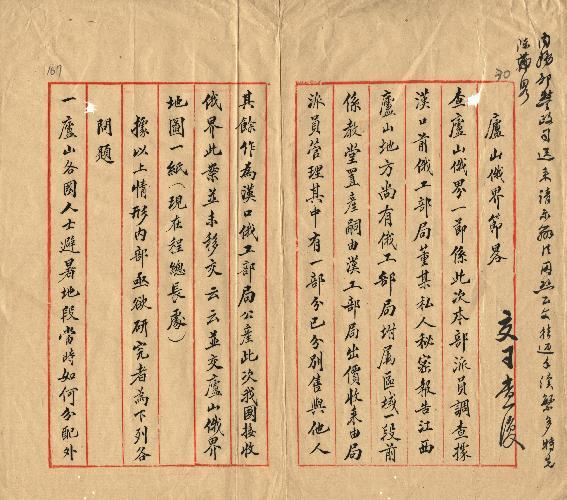 內務部警政司送來請示辦法
除節略
70
交司查復
廬山俄界節略
查廬山俄界一節係此次本部派員調查據
漢口前俄工部局董某私人秘密報告江西
廬山地方尚有俄工部局坿屬區域一段前
係教堂置產嗣由漢工部局出價收來由局
派員管理其中有一部分已分別售與他人
167
其餘作為漢口俄工部局公產此次我國接收
俄界此業並未移交云云並交廬山俄界
地圖一紙(現在程總長處)
據以上情形內部亟欲研究者為下列各
問題
一廬山各國人士避暑地段當時如何分配外